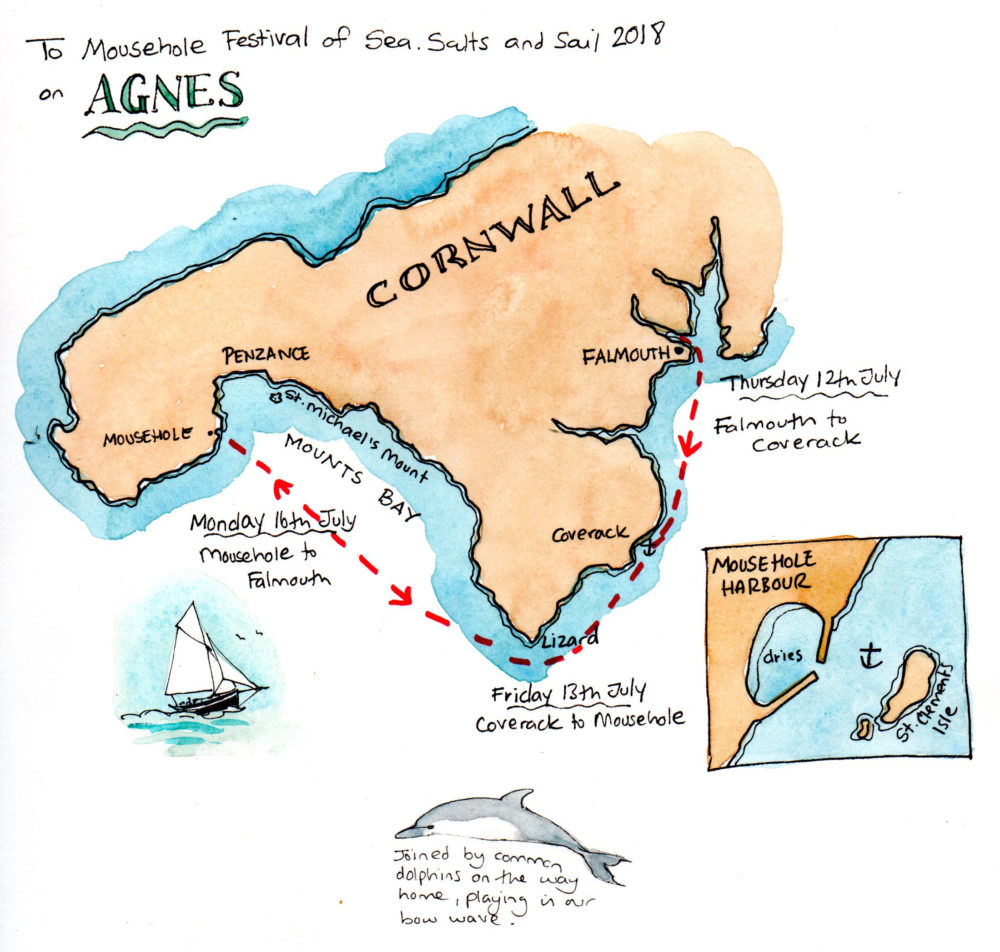 To Mousehole Festival of Sea. Salts and Sail 2018
on AGNES
CORNWALL
PENZANCE
FALMOUTH
Thursday 12th July
Falmouth to
Coverack
St. Michael's Mount
MOUSEHOLE
MOUNTS BAY
Monday 16th July
Mousehole to
Falmouth
Coverack
Lizard
Friday 13th July
Coverack to Mousehole
MOUSEHOLE
HARBOUR
dries
St. Clements
Isle
Joined by common
dolphins on the way
home, playing in our
bow wave.